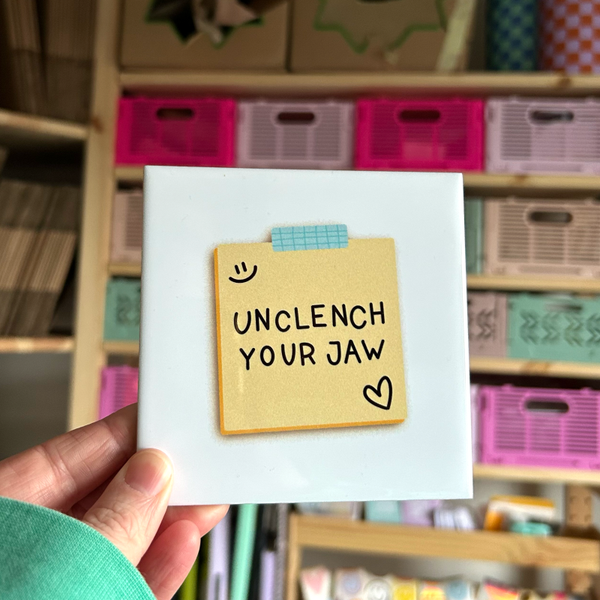 UNCLENCH
YOUR JAW